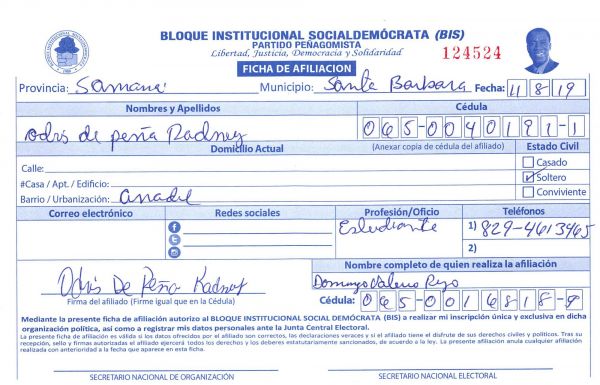 BLOQUE INSTITUCIONAL SOCIALDEMÓCRATA (BIS)
PARTIDO PEÑAGOMISTA
Libertad, Justicia, Democracia y Solidaridad
124524
FICHA DE AFILIACION
Provincia: Samaná Municipio: Santa Barbara Fecha: 11/8/19
Nombres y Apellidos Cédula
odris de peña Radney 065-0040191-1
Domicilio Actual (Anexar copia de cédula del afiliado) Estado Civil
Calle: Casado
#Casa / Apt. / Edificio: ✓ Soltero
Barrio / Urbanización: anadel Conviviente
Correo electrónico Redes sociales Profesión/Oficio Teléfonos
Estudiante 1) 829-4613465
2)
Nombre completo de quien realiza la afiliación
Odris De Peña Radney
Firma del afiliado (Firme igual que en la Cédula) Cédula: 065-0016818-9
Mediante la presente ficha de afiliación autorizo al BLOQUE INSTITUCIONAL SOCIAL DEMÓCRATA (BIS) a realizar mi inscripción única y exclusiva en dicha
organización política, así como a registrar mis datos personales ante la Junta Central Electoral.
La presente ficha de afiliación es válida si los datos ofrecidos por el afiliado son correctos, las declaraciones veraces y si el titular es disfrute de sus derechos civiles y políticos. Tras su
recepción, sello y firmas autorizadas el afiliado ejercerá todos los derechos y los deberes estatutariamente sancionados, de acuerdo a la ley. La presente afiliación anula cualquier afiliación
realizada con anterioridad a la fecha que aparece en esta ficha.
SECRETARIO NACIONAL DE ORGANIZACIÓN SECRETARIO NACIONAL ELECTORAL